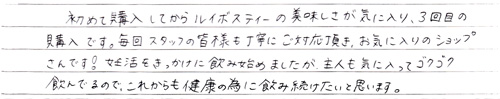 初めて購入してからルイボスティーの美味しさが気に入り、3回目の
購入です。毎回スタッフの皆様も丁寧にご対応頂き、お気に入りのショップ
さんです!妊活をきっかけに飲み始めましたが、主人も気に入ってゴクゴク
飲んでるので、これからも健康の為に飲み続けたいと思います。